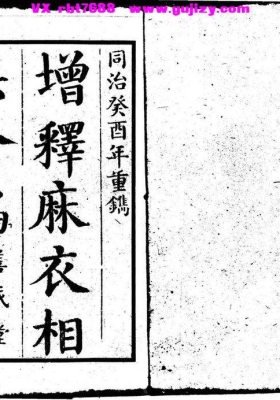 VX rbt7088 www.gujizy.com
同治癸酉年重鐫
增釋麻衣相